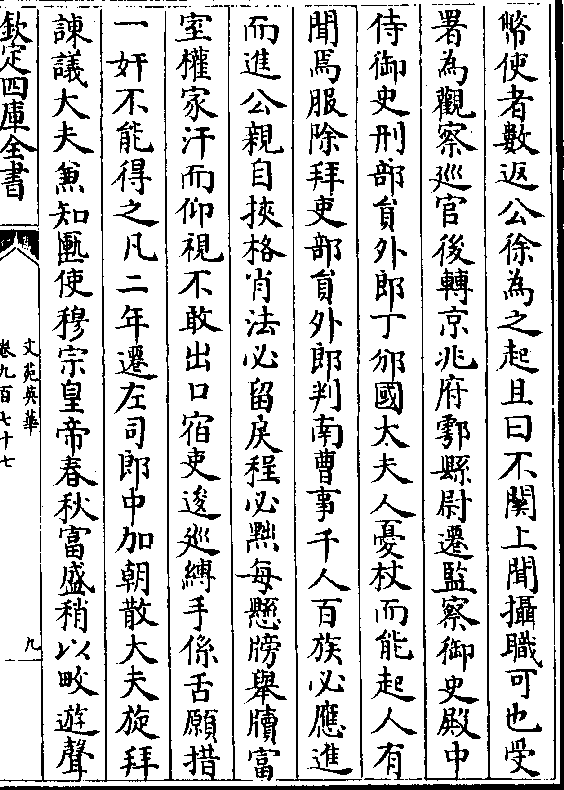 幣使者數返公徐為之起且曰不關上聞攝職可也受
署為觀察巡官後轉京兆府鄠縣尉遷監察御史殿中
侍御史刑部貟外郎丁邠國太夫人憂杖而能起人有
聞焉服除拜吏部貟外郎判南曹事千人百族必應進
而進公親自挾格肖法必留戾程必黜每懸牓舉牘富
室權家汗而仰視不敢出口宿吏逡巡縛手係舌願措
一奸不能得之凡二年遷左司郎中加朝散大夫旋拜
諫議大夫兼知匭使穆宗皇帝春秋富盛稍以畋遊聲
欽定四庫全書
文苑英華
卷九百七十七
九